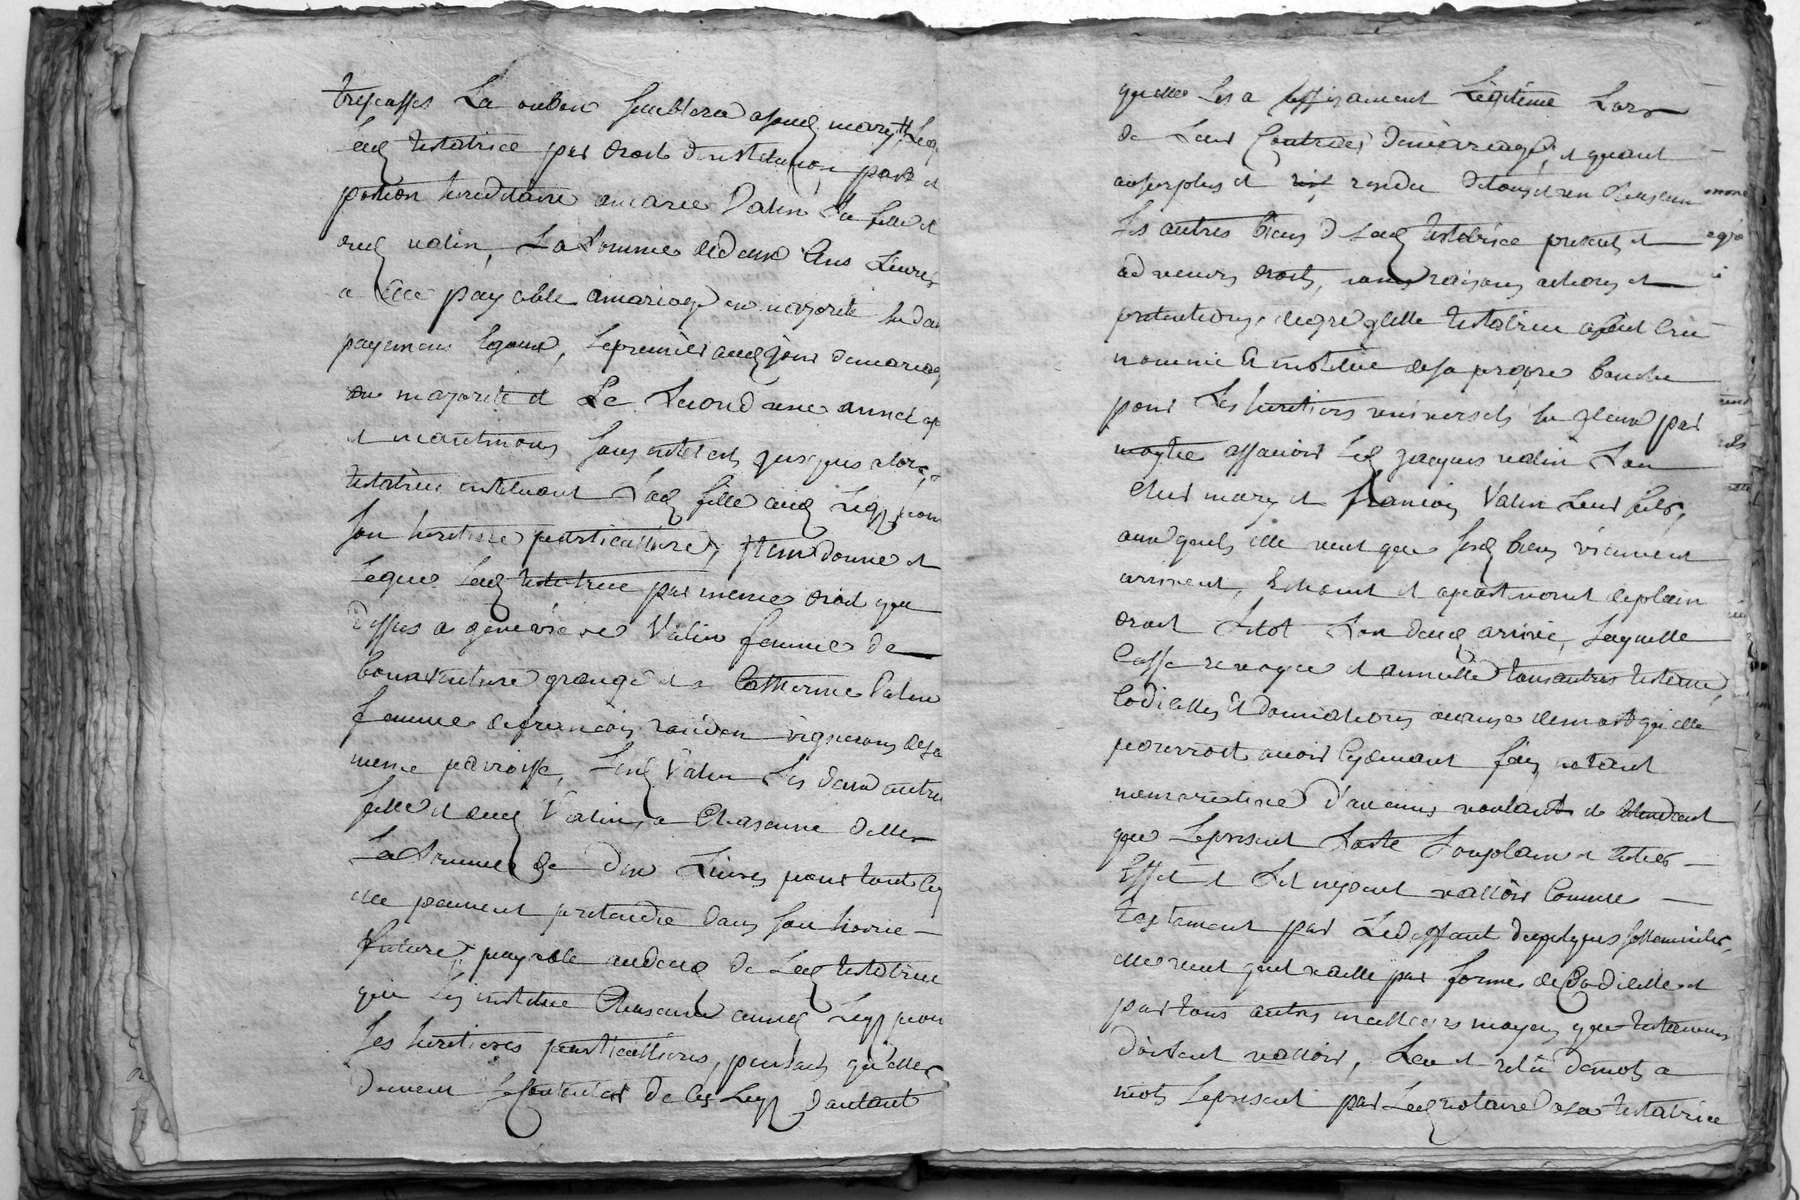 trepassés La ou bon semblera a sond. mary, Legue
lad. testatrice par droit d'institution part et
portion hereditaire a marie Valin sa fille et
dud. valin, La somme de deux Cens Livres
a Elle payable a mariage ou majorité en deux
payemens Egaux, Le premier aud. jour de mariage
ou majorité et Le Second une année ap
et sans interest jusques alors,
testatrice instituant Lad. fille aud. Legs pour
son heritiere particulliere, Item donne et
Legue lad. testatrice par meme droit que
dessus a genevieve Valin femme de
bonaventure grange et a Catherine Valin
femme de françois vignerons de la
meme parroisse, Lesd. Valin Ses deux autres
filles et dud. Valin, a Chascune d'elles
La Somme de dix Livres pour tout ce
elle peuvent pretendre dans son hoirie
future, payable au deces de Lad. testatrice
que les institue Chascune aud. Legs pour
ses heritieres particullieres, pensant qu'elles
doivent se Contenter de ces Legs d'autant
qu'elle Les a suffisament Legitimé Lors
de Leur Contract de mariage, et quant
au surplus et residu de tous et un Chascun
Les autres biens de Lad. testatrice presents et
advenirs droits, noms raisons actions et
pretentions, icelle testatrice a fait Créé
nommé Et institué de sa propre bouche
pour Ses heritiers universels En seul par
moytie assavoir Led. jacques valin Son
Cher mary et françois Valin Leur fils,
auxquels elle veut que sesd. biens viennent
arrivent, Echoient et apartienent de plein
droit Sitot Son deces arrivé, Laquelle
Casse revoque et annulle tous autres testamens,
Codicilles Et Donnations a cause de mort qu'elle
pourroit avoir Cydevant fait, n'etant
memorative d'aucuns voulant et Entendant
que Le present Sorte Son plain et Entier
Effet et S'il ne peut valloir Comme
Testament par Le deffaut de quelques sollemnités,
elle veut qu'il vaille par forme de Codicille et
par tous autres meilleurs moyens que testamens
doivent valloir, Leu et releu de mots a
mots Le present par Led. notaire a La testatrice